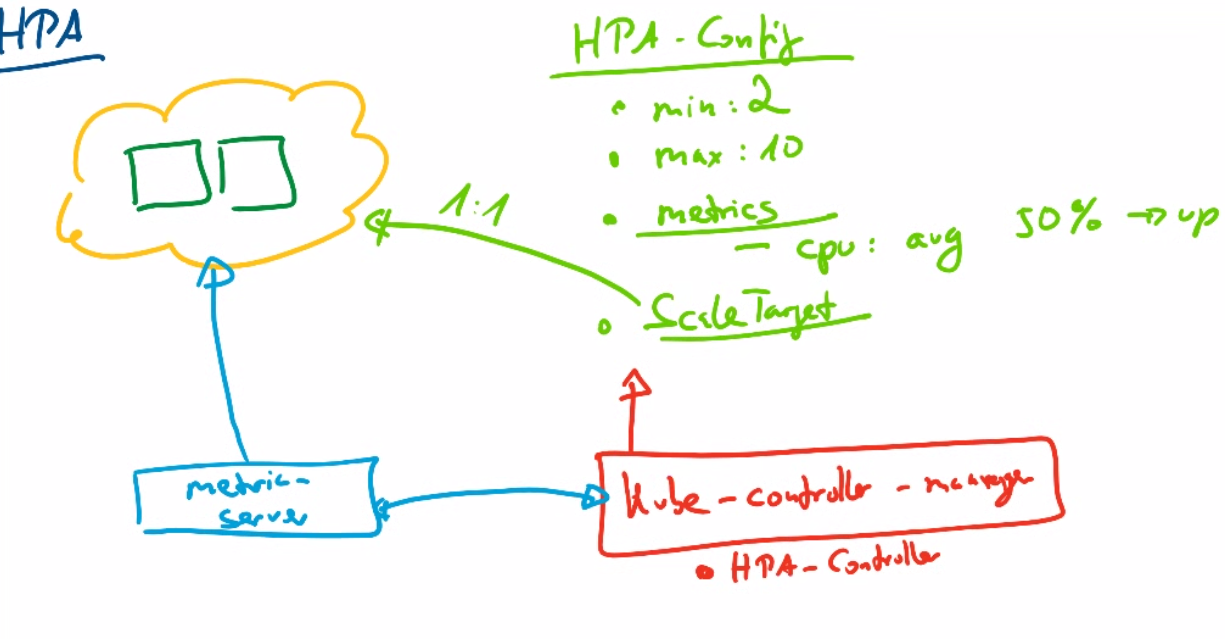 HPA
HPA - Config
• min : 2
• max : 10
• metrics
- cpu : avg 50% → up
1:1
• ScaleTarget
metric-
server
Kube - controller - manager
• HPA - Controller